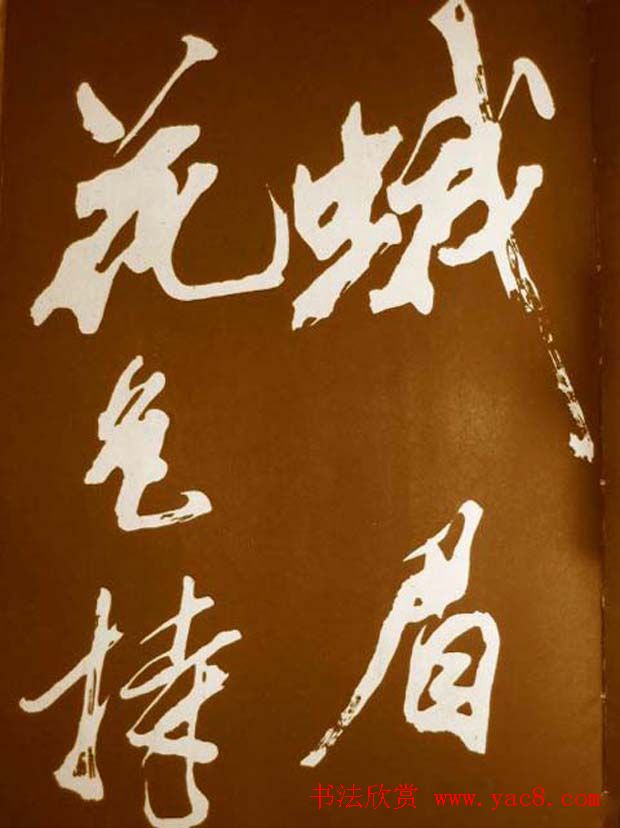 蛾眉
花色持
书法欣赏 www.yac8.com